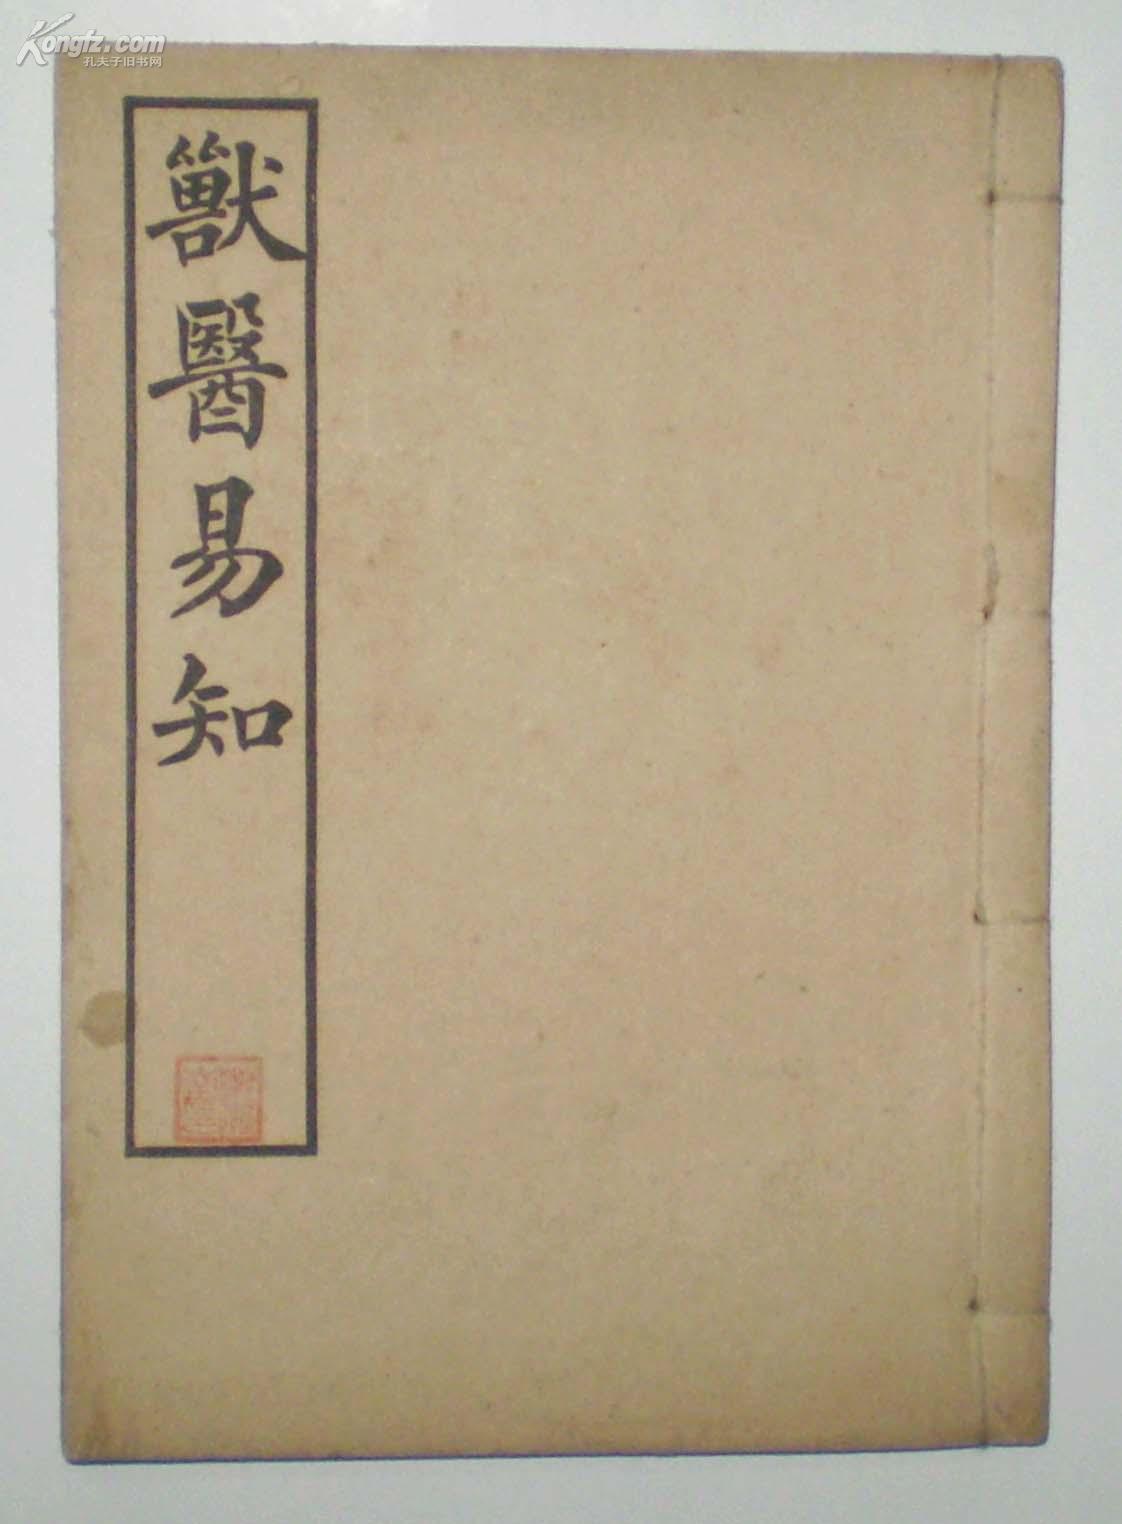 Kongfz.com
孔夫子旧书网
獸醫易知